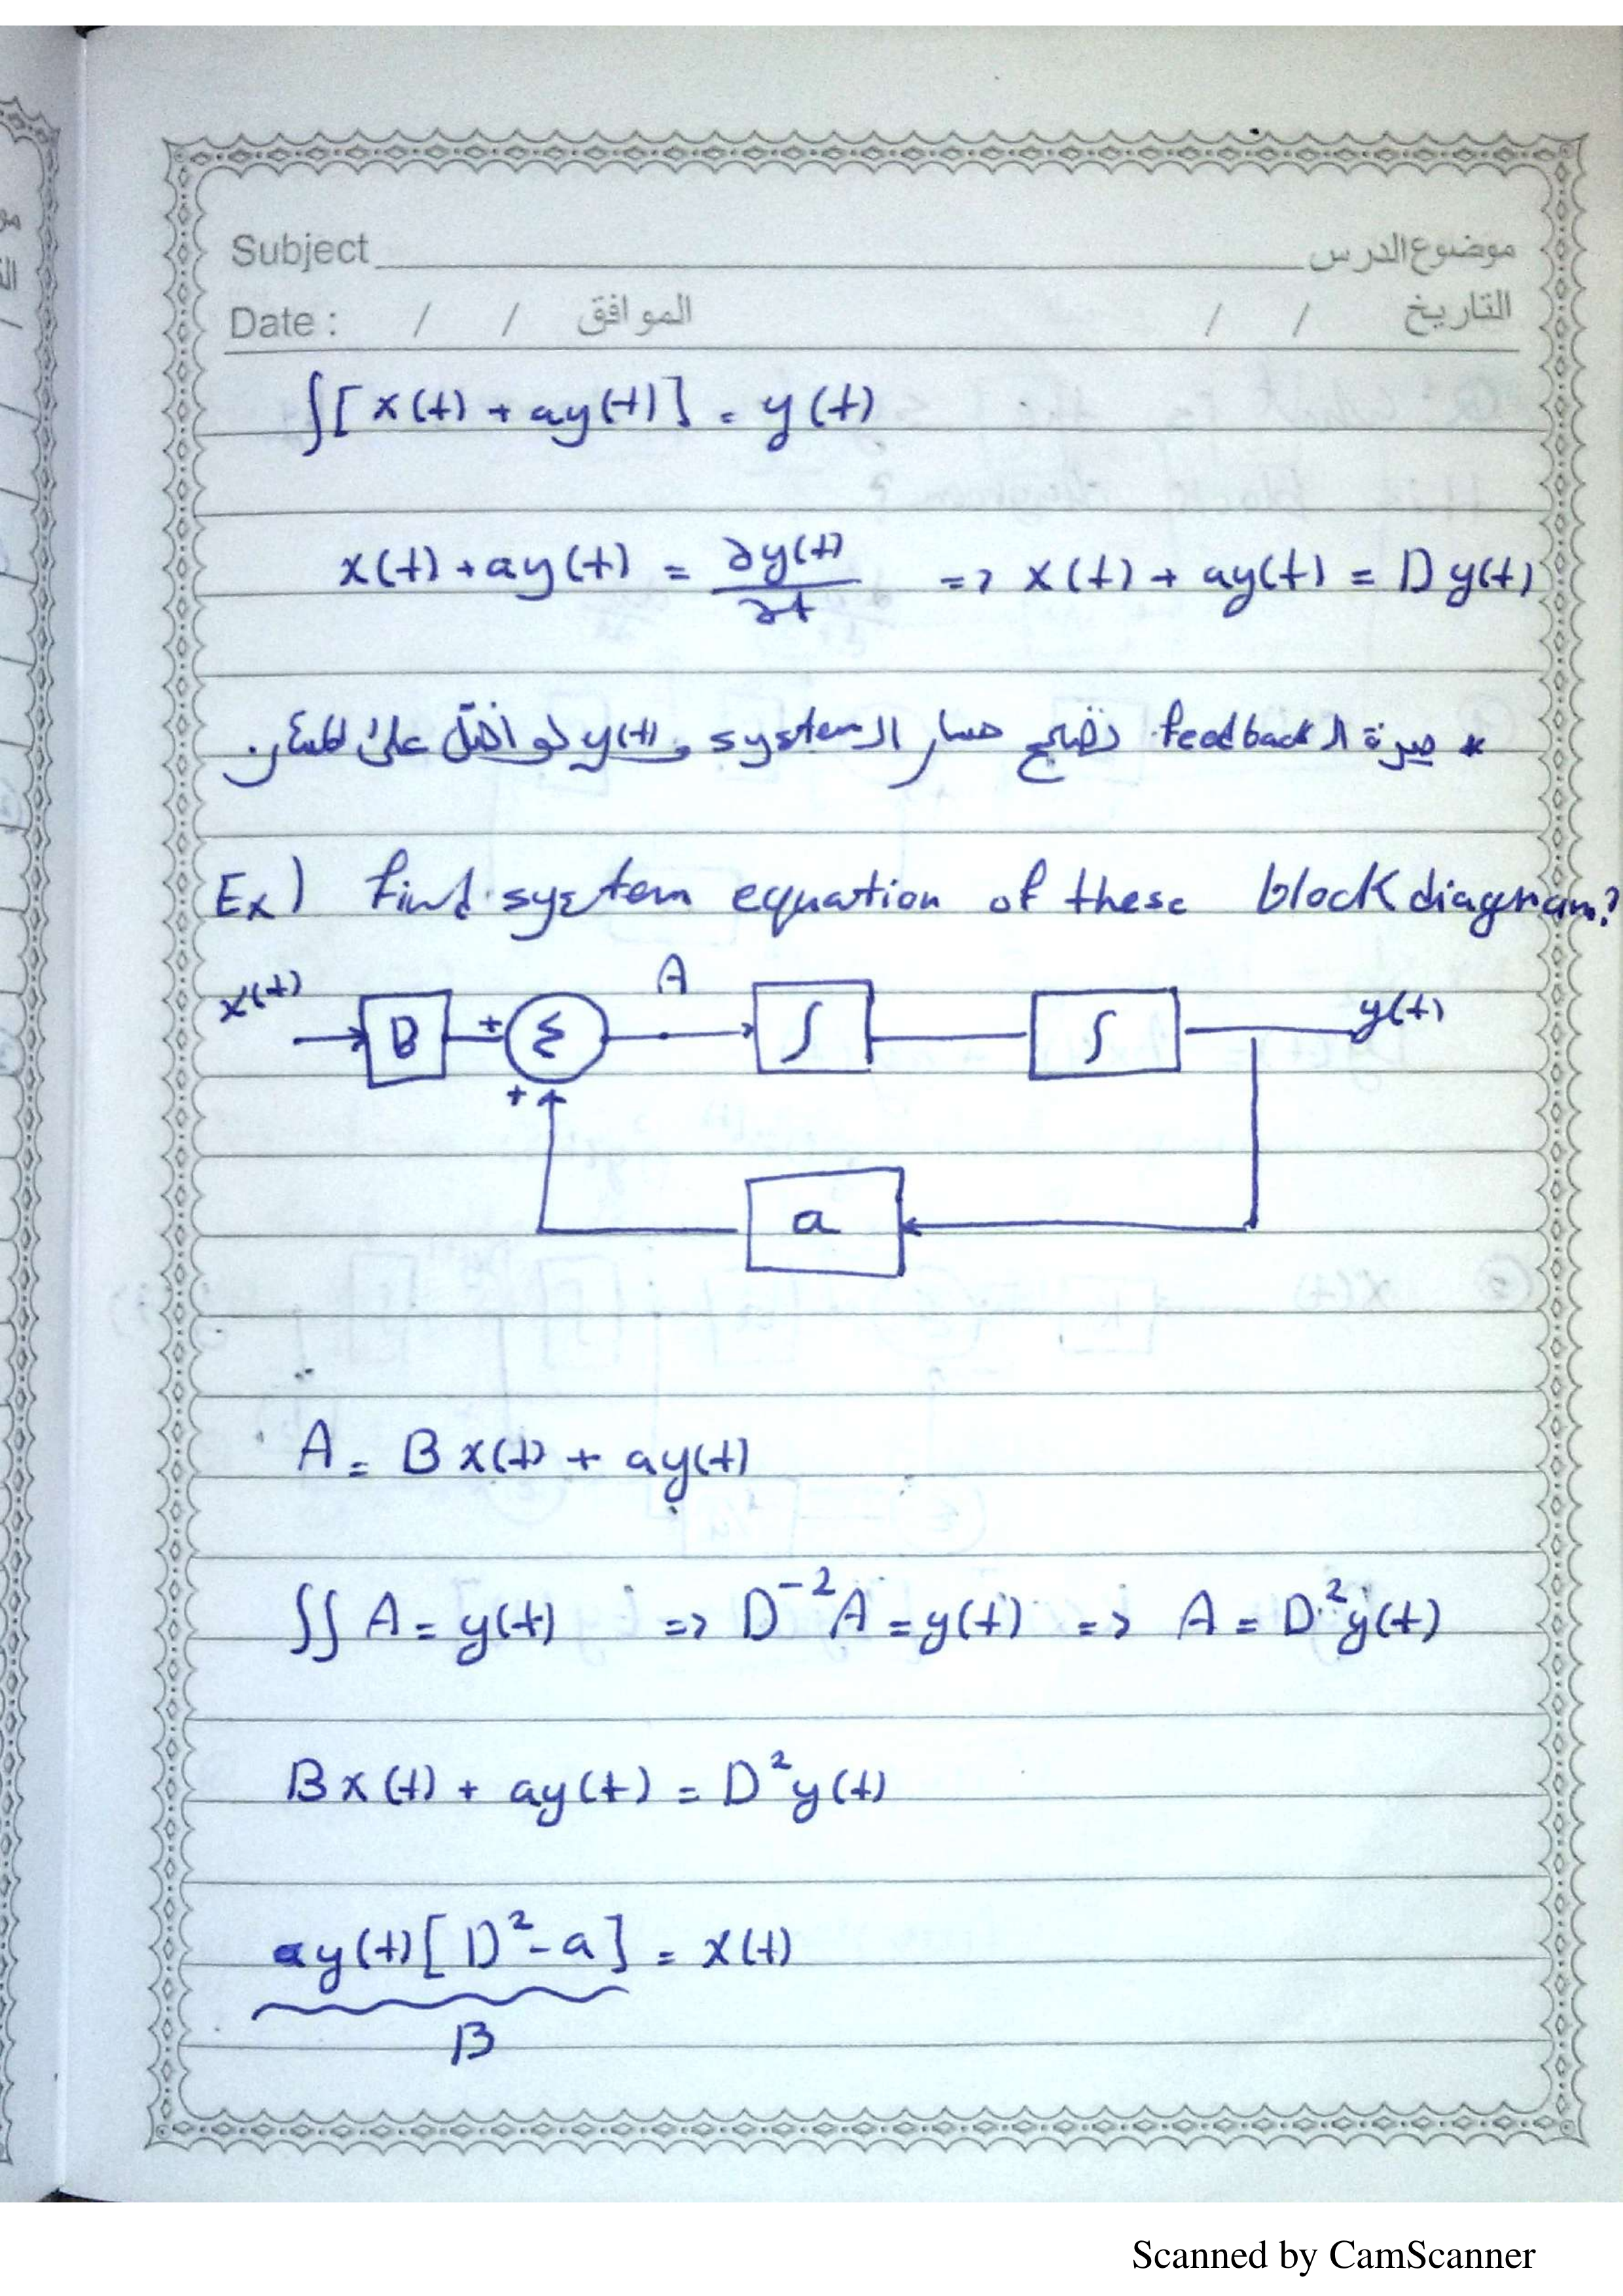 Subject موضوع الدرس
Date : / / الموافق / / التاريخ
∫[x(t) + ay(t)] = y(t)
x(t) + ay(t) = ∂y(t)/∂t => x(t) + ay(t) = D y(t)
* ميزة الـ feedback تصحح مسار الـ system و y(t) لو اختل على المسار.
Ex) find system equation of these block diagram?
x(t) B + Σ A ∫ ∫ y(t)
+
a
A = B x(t) + ay(t)
∫∫ A = y(t) => D⁻² A = y(t) => A = D² y(t)
B x(t) + ay(t) = D² y(t)
ay(t) [D² - a] = x(t)
B
Scanned by CamScanner